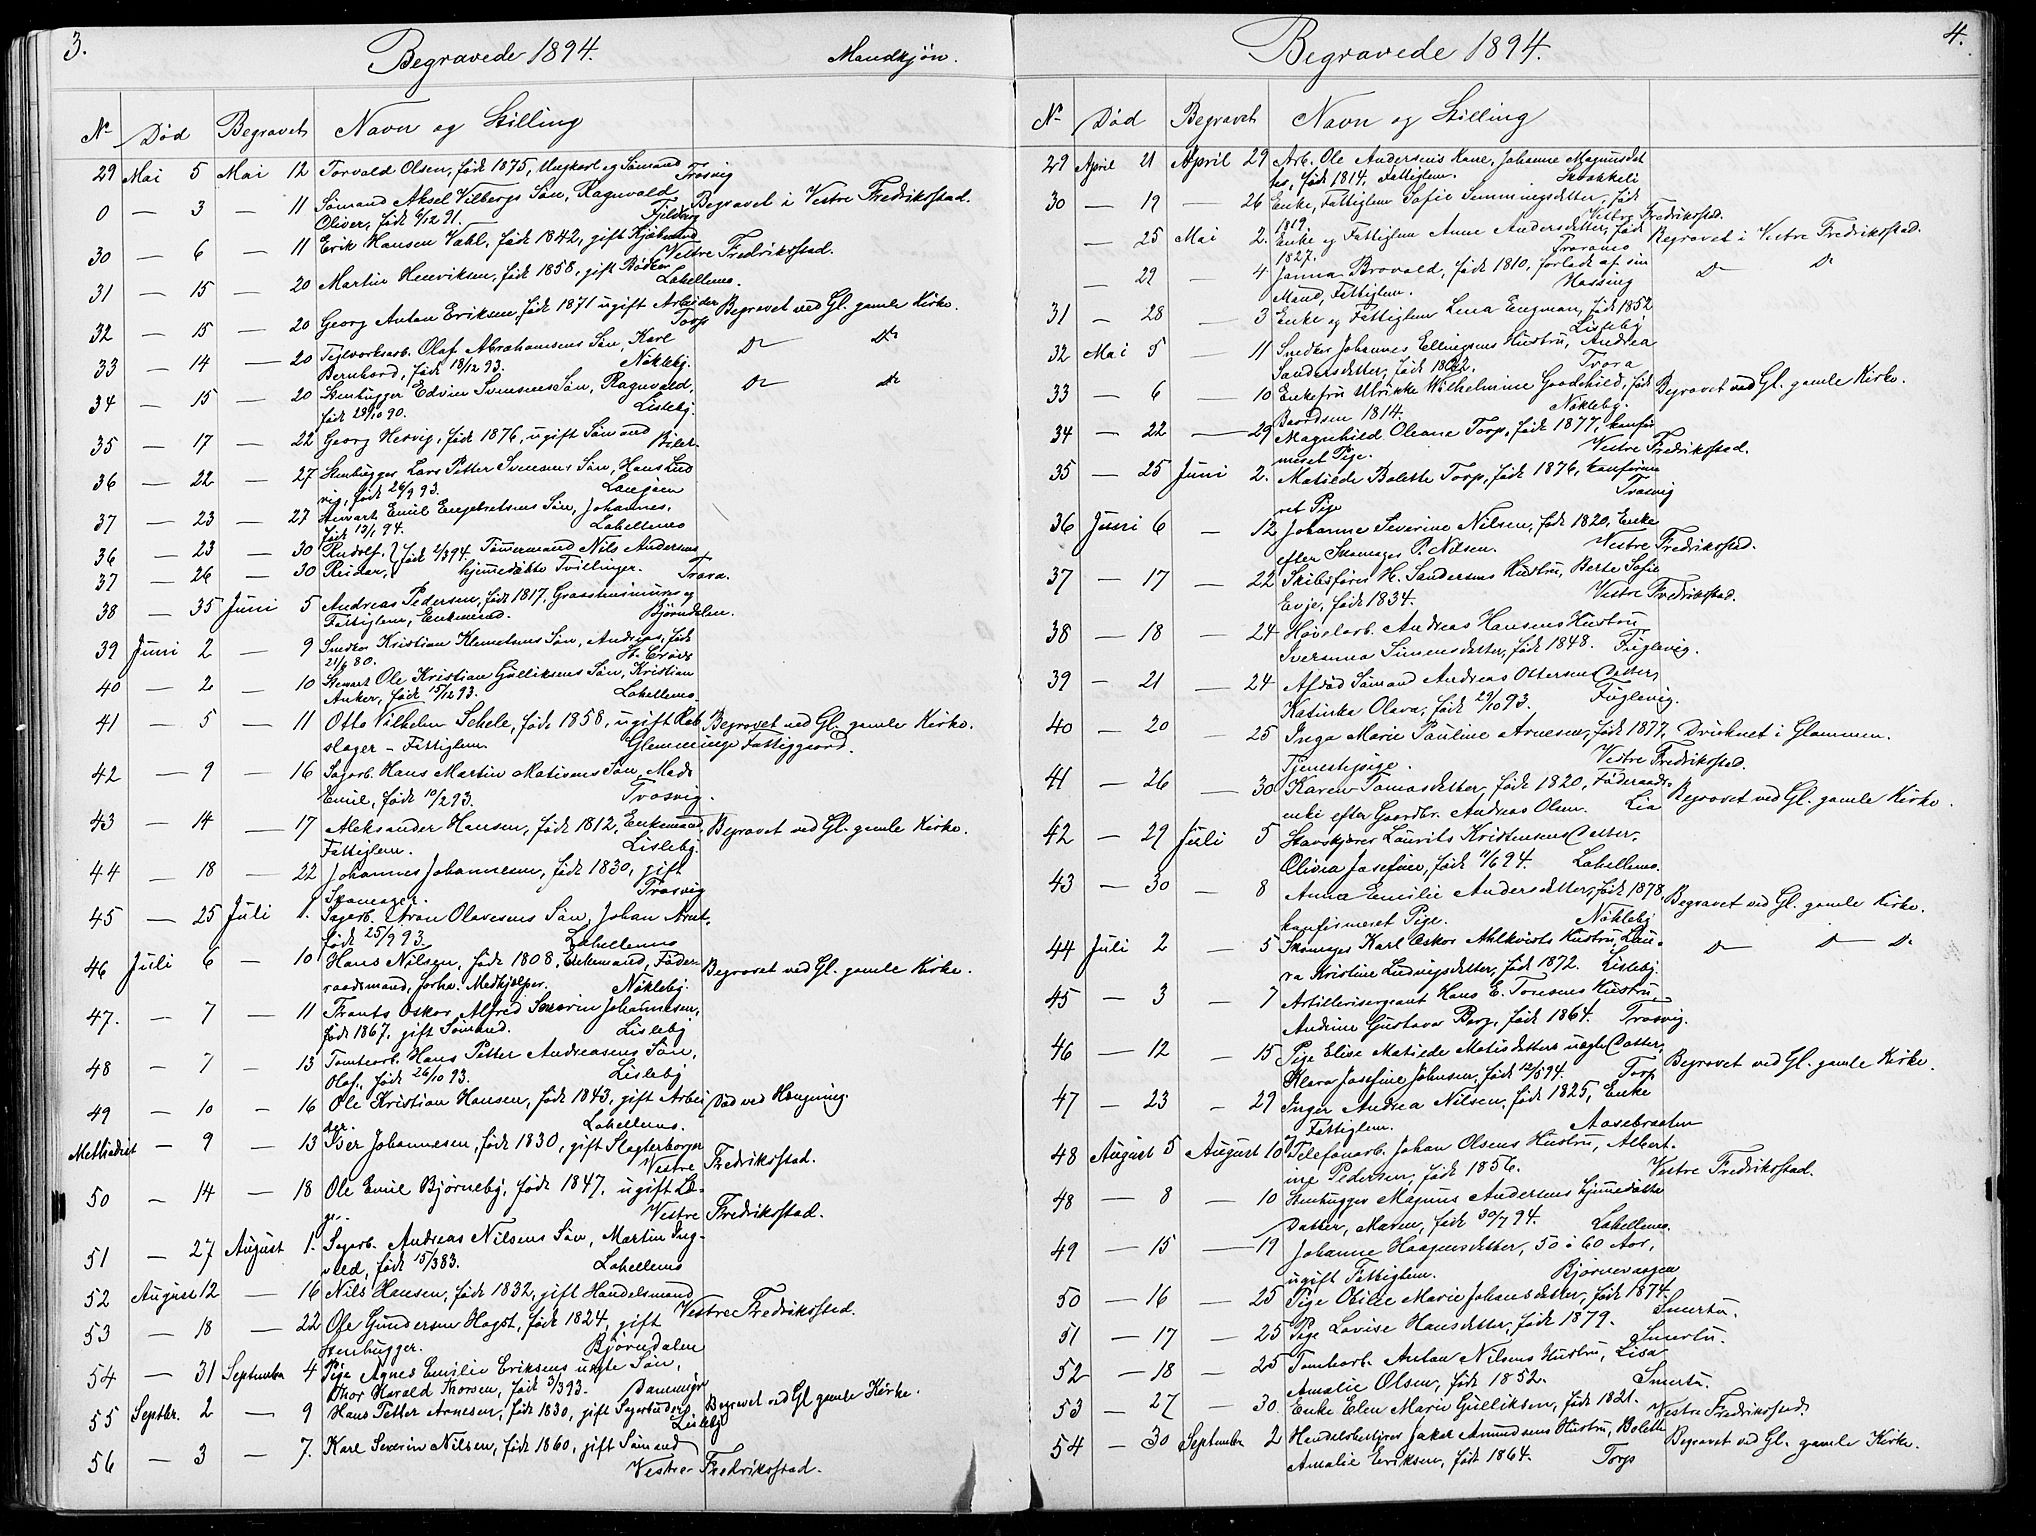 3.
Begravede 1894.
Mandkjøn.
Nr Død Begravet Navn og Stilling
29 Mai 5 Mai 12 Torvald Olsen, født 1875, Ungkarl og Sømand Trosvig
0 — 3 — 11 Sømand Aksel Vilbergs Søn, Ragnvald Begravet i Vestre Fredrikstad.
Oliver, født 6/12 91. Fjeldberg
30 — 6 — 11 Erik Hansen Vahl, født 1842, gift Kjøbmand
Vestre Fredrikstad.
31 — 15 — 20 Martin Henriksen, født 1858, gift Bødker
Labellens.
32 — 15 — 20 Georg Anton Eriksen, født 1871 ugift Arbeider Begravet ved Gl. gamle Kirke.
Torp
33 — 14 — 20 Teglverksarb. Olaf Abrahamsens Søn, Karl Do Do
Bernhard, født 18/12 93. Nøkleby.
34 — 15 — 20 Stenhugger Edvin Svensens Søn, Ragnvald, Do Do
født 28/10 90. Lisleby.
35 — 17 — 22 Georg Hesvig, født 1876, ugift Sømand
36 — 22 — 27 Stenhugger Lars Petter Svensens Søn, Hans Lud
vig, født 26/9 93.
37 — 23 — 27 Emil Engebretsens Søn, Johannes,
født 13/1 94. Labellens
36 — 23 — 30 Rudolf, } født 2/3 94. Tømmermand Nils Andersens
37 — 26 — 30 Reidar, hjemmedøbte Tvillinger. Trara.
38 — 35 Juni 5 Andreas Pedersen, født 1817, Graastensmurer og
Fattiglem, Enkemand. Bjørndalen.
39 Juni 2 — 9 Snedker Kristian Klemetsens Søn, Andreas, født
80.
40 — 2 — 10 Stenarb Ole Kristian Gulliksens Søn, Kristian
Anker, født 15/12 93. Labellens.
41 — 5 — 11 Otto Vilhelm Schele, født 1858, ugift Reb Begravet ved Gl. gamle Kirke.
slager – Fattiglem. Glemminge Fattiggaard.
42 — 9 — 16 Sagarb. Hans Martin Matisens Søn, Mads
Emil, født 10/2 93. Trosvig.
43 — 14 — 17 Aleksander Hansen, født 1812, Enkemand Begravet ved Gl. gamle Kirke.
Fattiglem. Lisleby.
44 — 18 — 22 Johannes Johannesen, født 1830, gift
Skomager. Trosvig
45 — 25 Juli 1. Sagarb. Aron Olavesens Søn, Johan Arnt,
født 25/9 93. Labellens
46 Juli 6 — 10 Hans Nilsen, født 1808, Enkemand, Føder- Begravet ved Gl. gamle Kirke.
raadsmand, forhv. Medhjælper. Nøkleby.
47. — 7 — 11 Frants Oskar Alfred Severin Johannesen,
født 1867, gift Sømand. Lisleby
48 — 7 — 13 Tomtearb. Hans Petter Andreasens Søn,
Olaf, født 26/10 93. Lisleby
49 — 10 — 16 Ole Kristian Hansen, født 1843, gift Arbei Død ved Hængning.
der. Labellens.
Methodist — 9 — 13 Iver Johannesen, født 1830, gift Slagterborger
Vestre Fredrikstad.
50 — 14 — 18 Ole Emil Bjørneby, født 1847, ugift Læ-
ge. Vestre Fredrikstad.
51 — 27 August 1. Sagarb. Andreas Nilsens Søn, Martin Ing-
vald, født 15/3 83. Labellens
52 August 12 — 16 Nils Hansen, født 1832, gift Handelsmand
Vestre Fredrikstad.
53 — 18 — 22 Ole Gundersen Høgst, født 1824, gift
Stenhugger. Bjørndalen
54 — 31 September 4 Pige Agnes Emilie Eriksens uægte Søn,
Thor Harald Thorsen, født 3/3 93. Dammyr
55 Septbr. 2 — 9 Hans Petter Arnesen, født 1830, gift Sagarbeider Begravet ved Gl gamle Kirke.
Lisleby
56 — 3 — 7. Karl Severin Nilsen, født 1860, gift Sømand
Vestre Fredrikstad.
4.
Begravede 1894.
Nr Død Begravet Navn og Stilling
29 April 21 April 29 Arb. Ole Andersens Kone, Johanne Magnusdat
ter, født 1814, Fattiglem.
30 — 19 — 26 Enke, Fattiglem Sofie Semmingsdatter, født
1819. Vestre Fredrikstad.
— 25 Mai 2. Enke og Fattiglem Anne Andersdatter, født Begravet i Vestre Fredrikstad.
1827.
— 29 — 4 Janna Brovald, født 1810, forladt af sin Do Do
Mand, Fattiglem. Hassing
31 — 28 — 3 Enke og Fattiglem Lena Engman, født 1852
Lisleby
32 Mai 5 — 11 Snedker Johannes Ellingsens Hustru, Andrea
Sandersdatter, født 1822. Trara
33 — 6 — 10 Enkefru Ulrikke Wilhelmine Goodchild, født Begravet ved Gl. gamle Kirke.
Baardsen 1814. Nøkleby.
34 — 22 — 29 Magnhild Oleane Torp, født 1877, konfir
meret Pige. Vestre Fredrikstad.
35 — 25 Juni 2. Matilde Bolette Torp, født 1876, konfirme
ret Pige Trosvig
36 Juni 6 — 12 Johanne Severine Nilsen, født 1820, Enke
efter Skomager P. Nilsen. Vestre Fredrikstad.
37 — 17 — 22 Skibsfører H. Sandersens Hustru, Berte Sofie
Evje, født 1834. Vestre Fredrikstad.
38 — 18 — 24 Høvelarb. Andreas Hansens Hustru
Iversinna Simensdatter, født 1848. Fuglevig.
39 — 21 — 24 Afdød Sømand Andreas Ottersens Datter,
Katinka Olava, født 29/10 93. Fuglevig.
40 — 20 — 25 Inga Marie Pauline Arnesen, født 1877, Druknet i Glommen.
Tjenestepige. Vestre Fredrikstad.
41 — 26 — 30 Karen Tomasdatter, født 1820, Føderaads- Begravet ved Gl. gamle Kirke.
enke efter Gaardbr. Andreas Olsen. Lia
42 — 29 Juli 5 Stavskjærer Laurits Kristensens Datter,
Olivia Josefine, født 11/6 94. Labellens.
43 — 30 — 8 Anna Emilie Andersdatter, født 1878, Begravet ved Gl. gamle Kirke.
konfirmeret Pige. Nøkleby
44 Juli 2 — 5 Skomager Karl Oskar Ahlkvists Hustru, Lau- Do — Do — Do
ra Kristine Ludvigsdatter, født 1872. Lisleby.
45 — 3 — 7 Artillerisergeant Hans E. Toresens Hustru,
Andrine Gustava Berg, født 1864. Trosvig.
46 — 12 — 15 Pige Elise Matilde Matisdatters uægte Datter, Begravet ved Gl. gamle Kirke.
Klara Josefine Johnsen, født 12/5 94. Torp
47 — 23 — 29 Inger Andrea Nilsen, født 1825, Enke
Fattiglem. Aasebraaten
48 August 5 August 10 Telefonarb. Johan Olsens Hustru, Albert-
ine Pedersen, født 1856. Vestre Fredrikstad.
48 — 8 — 10 Stenhugger Magnus Andersens hjemmedøbte
Datter, Maren, født 30/7 94. Labellens.
49 — 15 — 19 Johanne Haagensdatter, 50 à 60 Aar,
ugift Fattiglem. Bjørnevaagen
50 — 16 — 25 Pige Otilie Marie Johansdatter, født 1874.
Smertu.
51 — 17 — 25 Pige Lovise Hansdatter, født 1879. Smertu.
52 — 18 — 25 Tomtearb. Anton Nilsens Hustru, Lisa
Amalie Olsen, født 1852. Smertu.
53 — 27 — 30 Enke Elen Marie Gulliksen, født 1821. Vestre Fredrikstad.
54 — 30 September 2 Handelsbetjent Jakob Amundsens Hustru, Bolette Begravet ved Gl. gamle Kirke.
Amalie Eriksen, født 1864. Torp